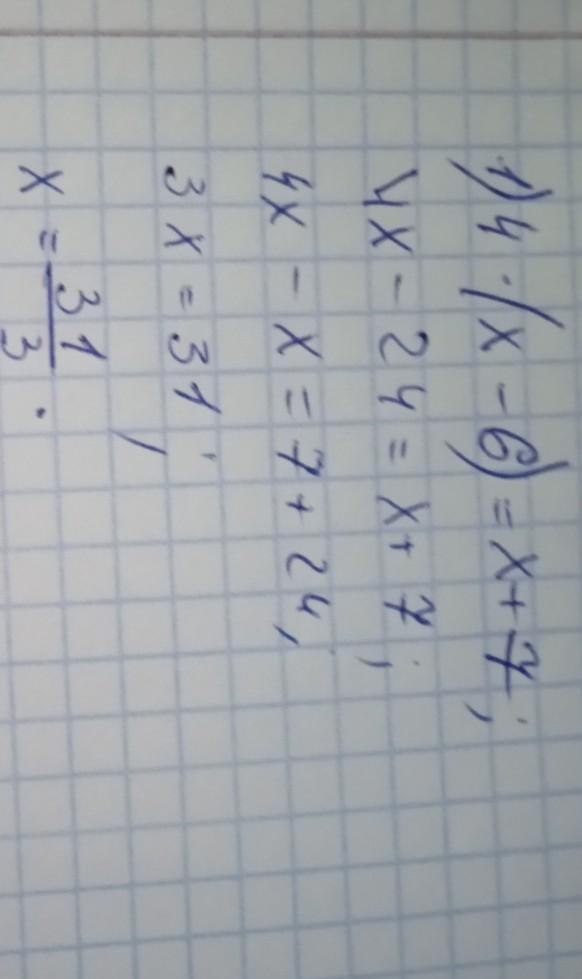 1) 4 · (x - 6) = x + 7;
4x - 24 = x + 7;
4x - x = 7 + 24;
3x = 31;
x = 31/3.